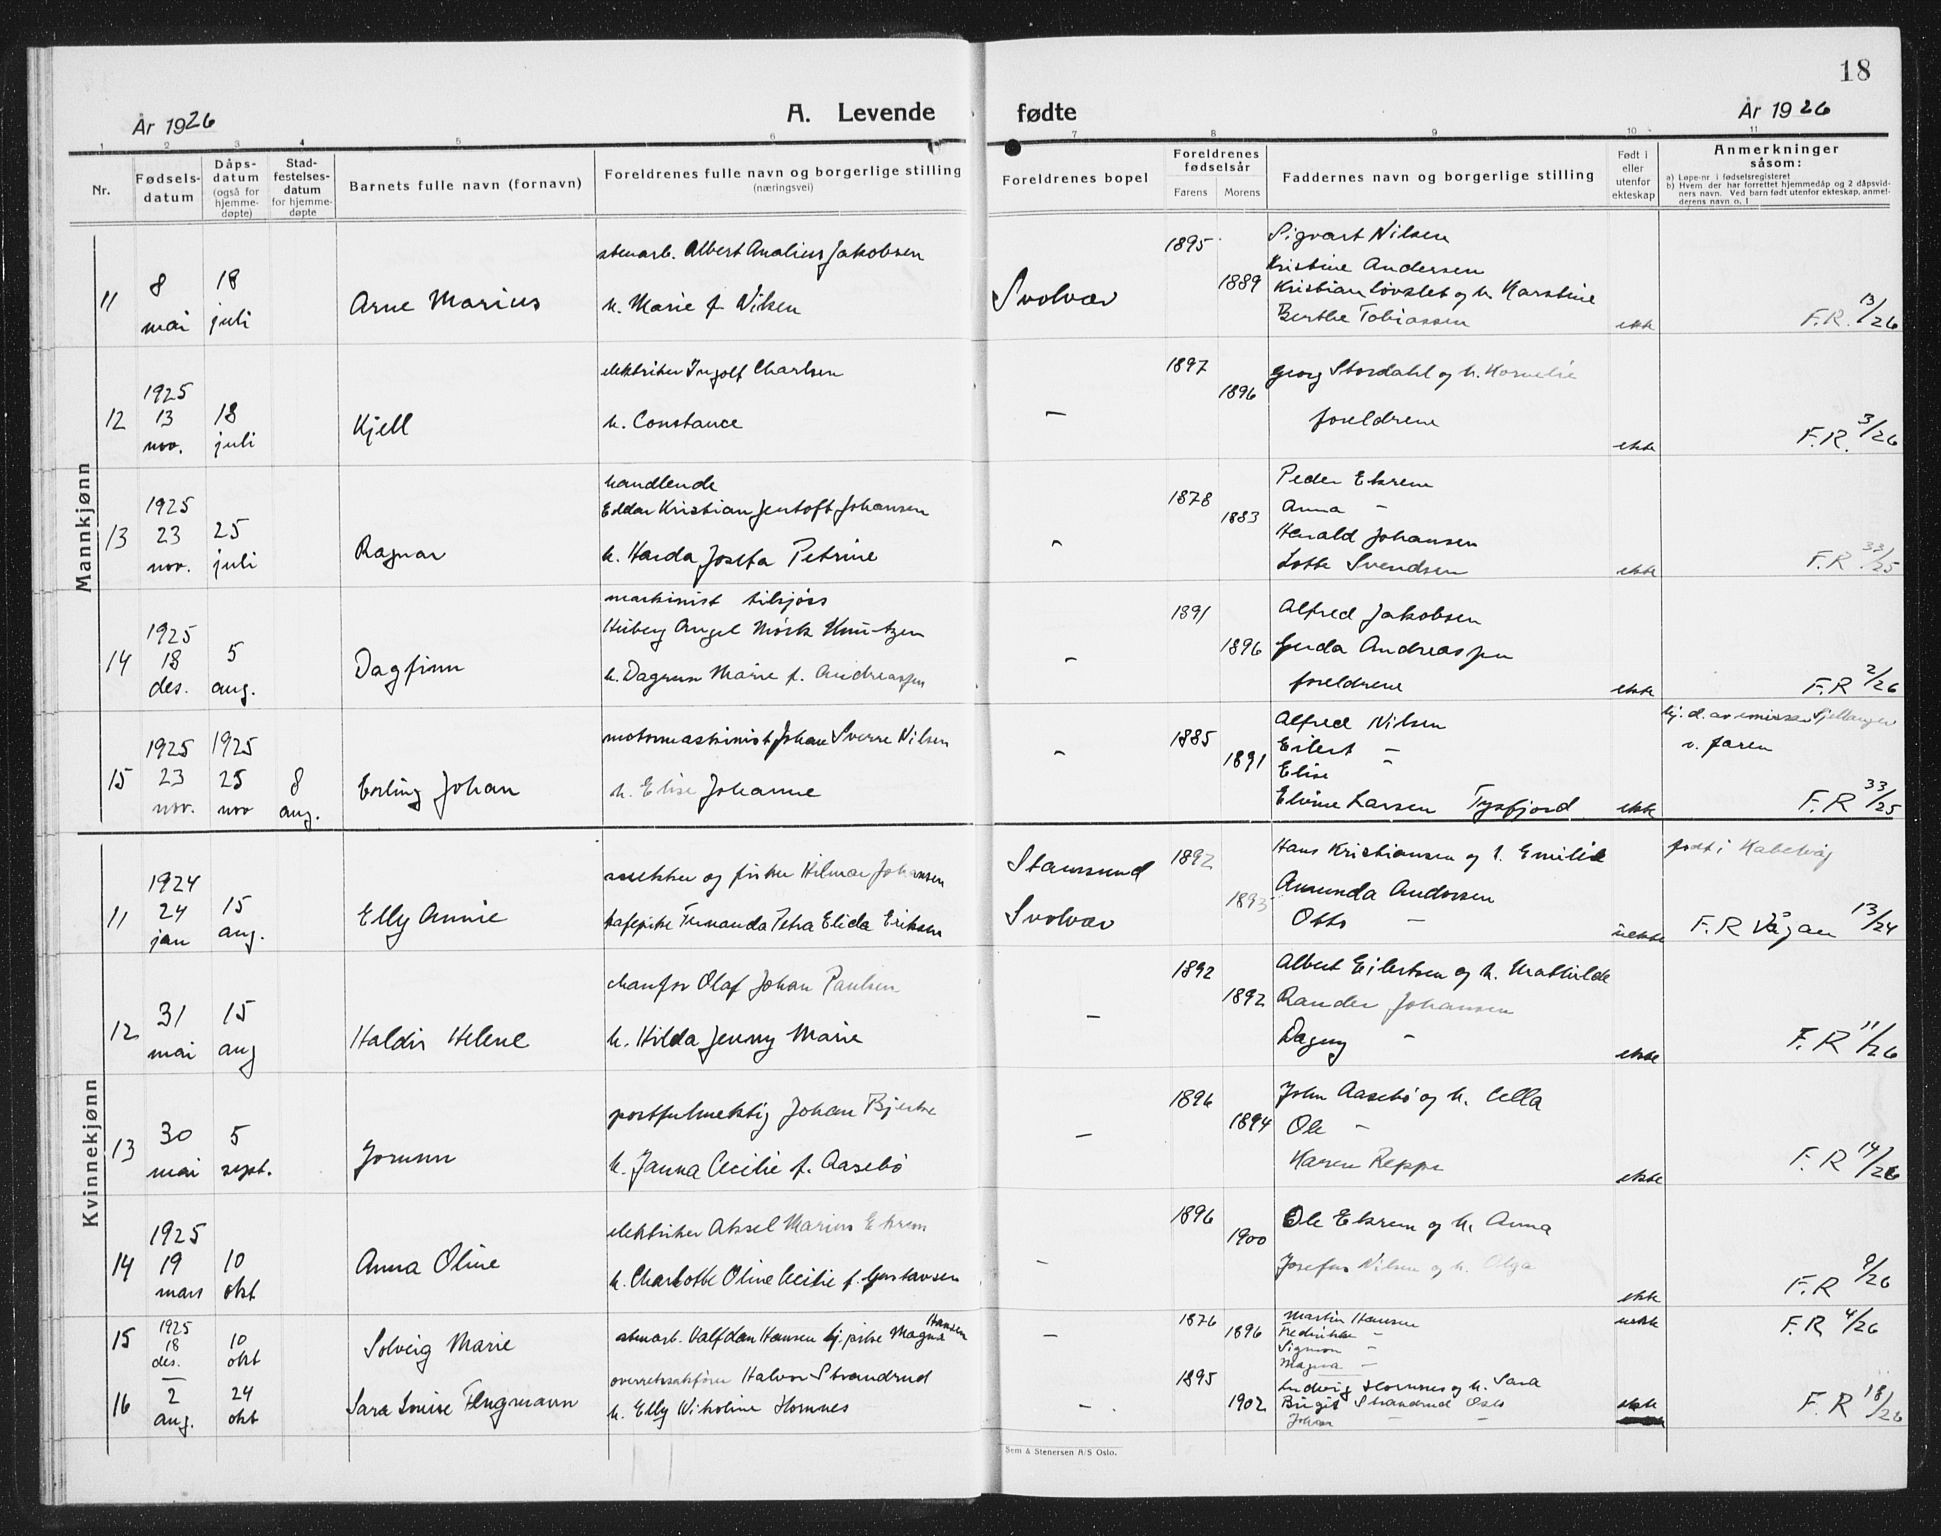 18
År 1926
A. Levende fødte
År 1926
1 2 3 4 5 6 7 8 9 10 11
Nr.
Fødsels-
datum
Dåps-
datum
(også for
hjemme-
døpte)
Stad-
festelses-
datum
for hjemme-
døpte
Barnets fulle navn (fornavn)
Foreldrenes fulle navn og borgerlige stilling
(næringsvei)
Foreldrenes bopel
Foreldrenes
fødselsår
Farens Morens
Faddernes navn og borgerlige stilling
Født i
eller
utenfor
ekteskap
Anmerkninger
såsom:
a) Løpe-nr i fødselsregisteret
b) Hvem der har forrettet hjemmedåp og 2 dåpsvid-
ners navn. Ved barn født utenfor ekteskap, anmel-
derens navn o. l
Mannkjønn
11 8 mai 18 juli Arne Marius
stenarb. Albert Analius Jakobsen
h. Marie f. Nilsen
Svolvær 1895 1889
Sigvart Nilsen
Kristine Andersen
Kristian Løvslet og h. Karstine
Berthe Tobiassen
ekte F.R. 13/26
12 1925 13 nov. 18 juli Kjell
elektriker Ingolf Charlsen
h. Constance
— 1897 1896
Georg Stordahl og h. Kornelie
foreldrene
ekte F.R. 3/26
13 1925 23 nov. 25 juli Ragnar
handlende
Eddar Kristian Jentoft Johansen
h. Harda Josefa Petrine
— 1878 1883
Peder Ekrem
Anna —
Harald Johansen
Lotte Svendsen
ekte F.R 33/25
14 1925 18 des. 5 aug. Dagfinn
maskinist tilsjøss
Huberg Angel Mörk Knutzen
h. Dagrun Marie f. Andreassen
— 1891 1896
Alfred Jakobsen
Gerda Andreassen
foreldrene
ekte F.R 2/26
15 1925 23 nov. 1925 25 nov 8 aug. Erling Johan
motormaskinist Johan Sverre Nilsen
h. Elise Johanne
— 1885 1891
Alfred Nilsen
Eilert —
Elise —
Eline Larsen Tysfjord
ekte
hj. d. av emissær Sjellanger
v. faren
F.R 33/25
Kvinnekjønn
11 1924 24 jan 15 aug. Elly Annie
snekker og fisker Hilmar Johansen
kafépike Fernanda Petra Elida Eriksen
Stamsund
Svolvær
1892 1893
Hans Kristiansen og h. Emilie
Amunda Andersen
Otto —
uekte
født i Kabelvåg
F.R Vågan 13/24
12 31 mai 15 aug Haldis Helene
chaufør Olaf Johan Paulsen
h. Hilda Jenny Marie
— 1892 1892
Albert Eilertsen og h. Mathilde
Rander Johansen
Dagny —
ekte F.R 11/26
13 30 mai 5 sept. Jorunn
postfulmektig Johan Bjerke
h. Janna Cecilie f. Aasebø
— 1896 1894
John Aasebø og h. Cella
Ole —
Karen Reppe
ekte F.R 14/26
14 1925 19 mars 10 okt Anna Oline
elektriker Aksel Marius Ekrem
h. Charlotte Oline Cecilie f. Gustavsen
— 1896 1900
Ole Ekrem og h. Anna
Josefus Nilsen og h. Olga
ekte F.R 9/26
15 1925 18 des. 10 okt Solveig Marie
stenarb. Halfdan Hansen hj. pike Magna Hansen
— 1876 1896
Martin Hansen
Fredrikke —
Sigmon —
Magna —
uekte F.R 4/26
16 2 aug. 24 okt Sara Louise Flugmann
overretssakfører Halvor Strandrud
h. Elly Nikoline Hornnes
— 1895 1902
Ludvig Hornnes og h. Sara
Birgit Strandrud Oslo
Johan — —
ekte F.R 18/26
Sem & Stenersen A/S Oslo.